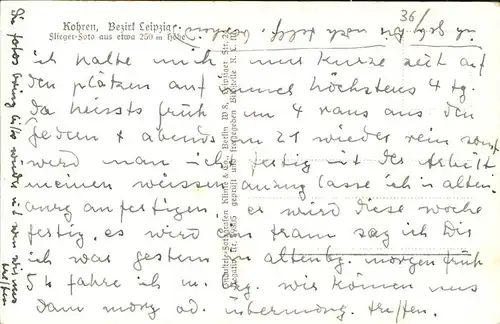 Kohren, Bezirk Leipzig
Flieger-Foto aus etwa 250 m Höhe
36/
ich halte mich nur kurze zeit auf
den plätzen auf höchstens 4 tg.
da heissts früh um 4 raus aus den
federn + abends um 21 wieder rein sonst
wird man nicht fertig mit der arbeit
meinen weissen anzug lasse ich in alten-
burg anfertigen. er wird diese woche
fertig. es wird ein sag ich Dir
ich war gestern in altenbg. morgen früh
4 fahre ich n. wir können uns
dann morg od. übermorg. treffen.
Die fotos bring bitte wieder mit wenn wir uns
treffen
Klinke & Co., Berlin W 8, Leipziger Str.